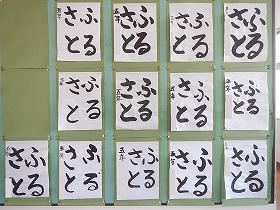 ふる
さと
ふる
さと
ふる
さと
ふる
さと
ふる
さと
ふる
さと
五年
ふる
さと
ふる
さと
ふる
さと
ふる
さと
ふる
さと
五年
ふる
さと
ふる
さと